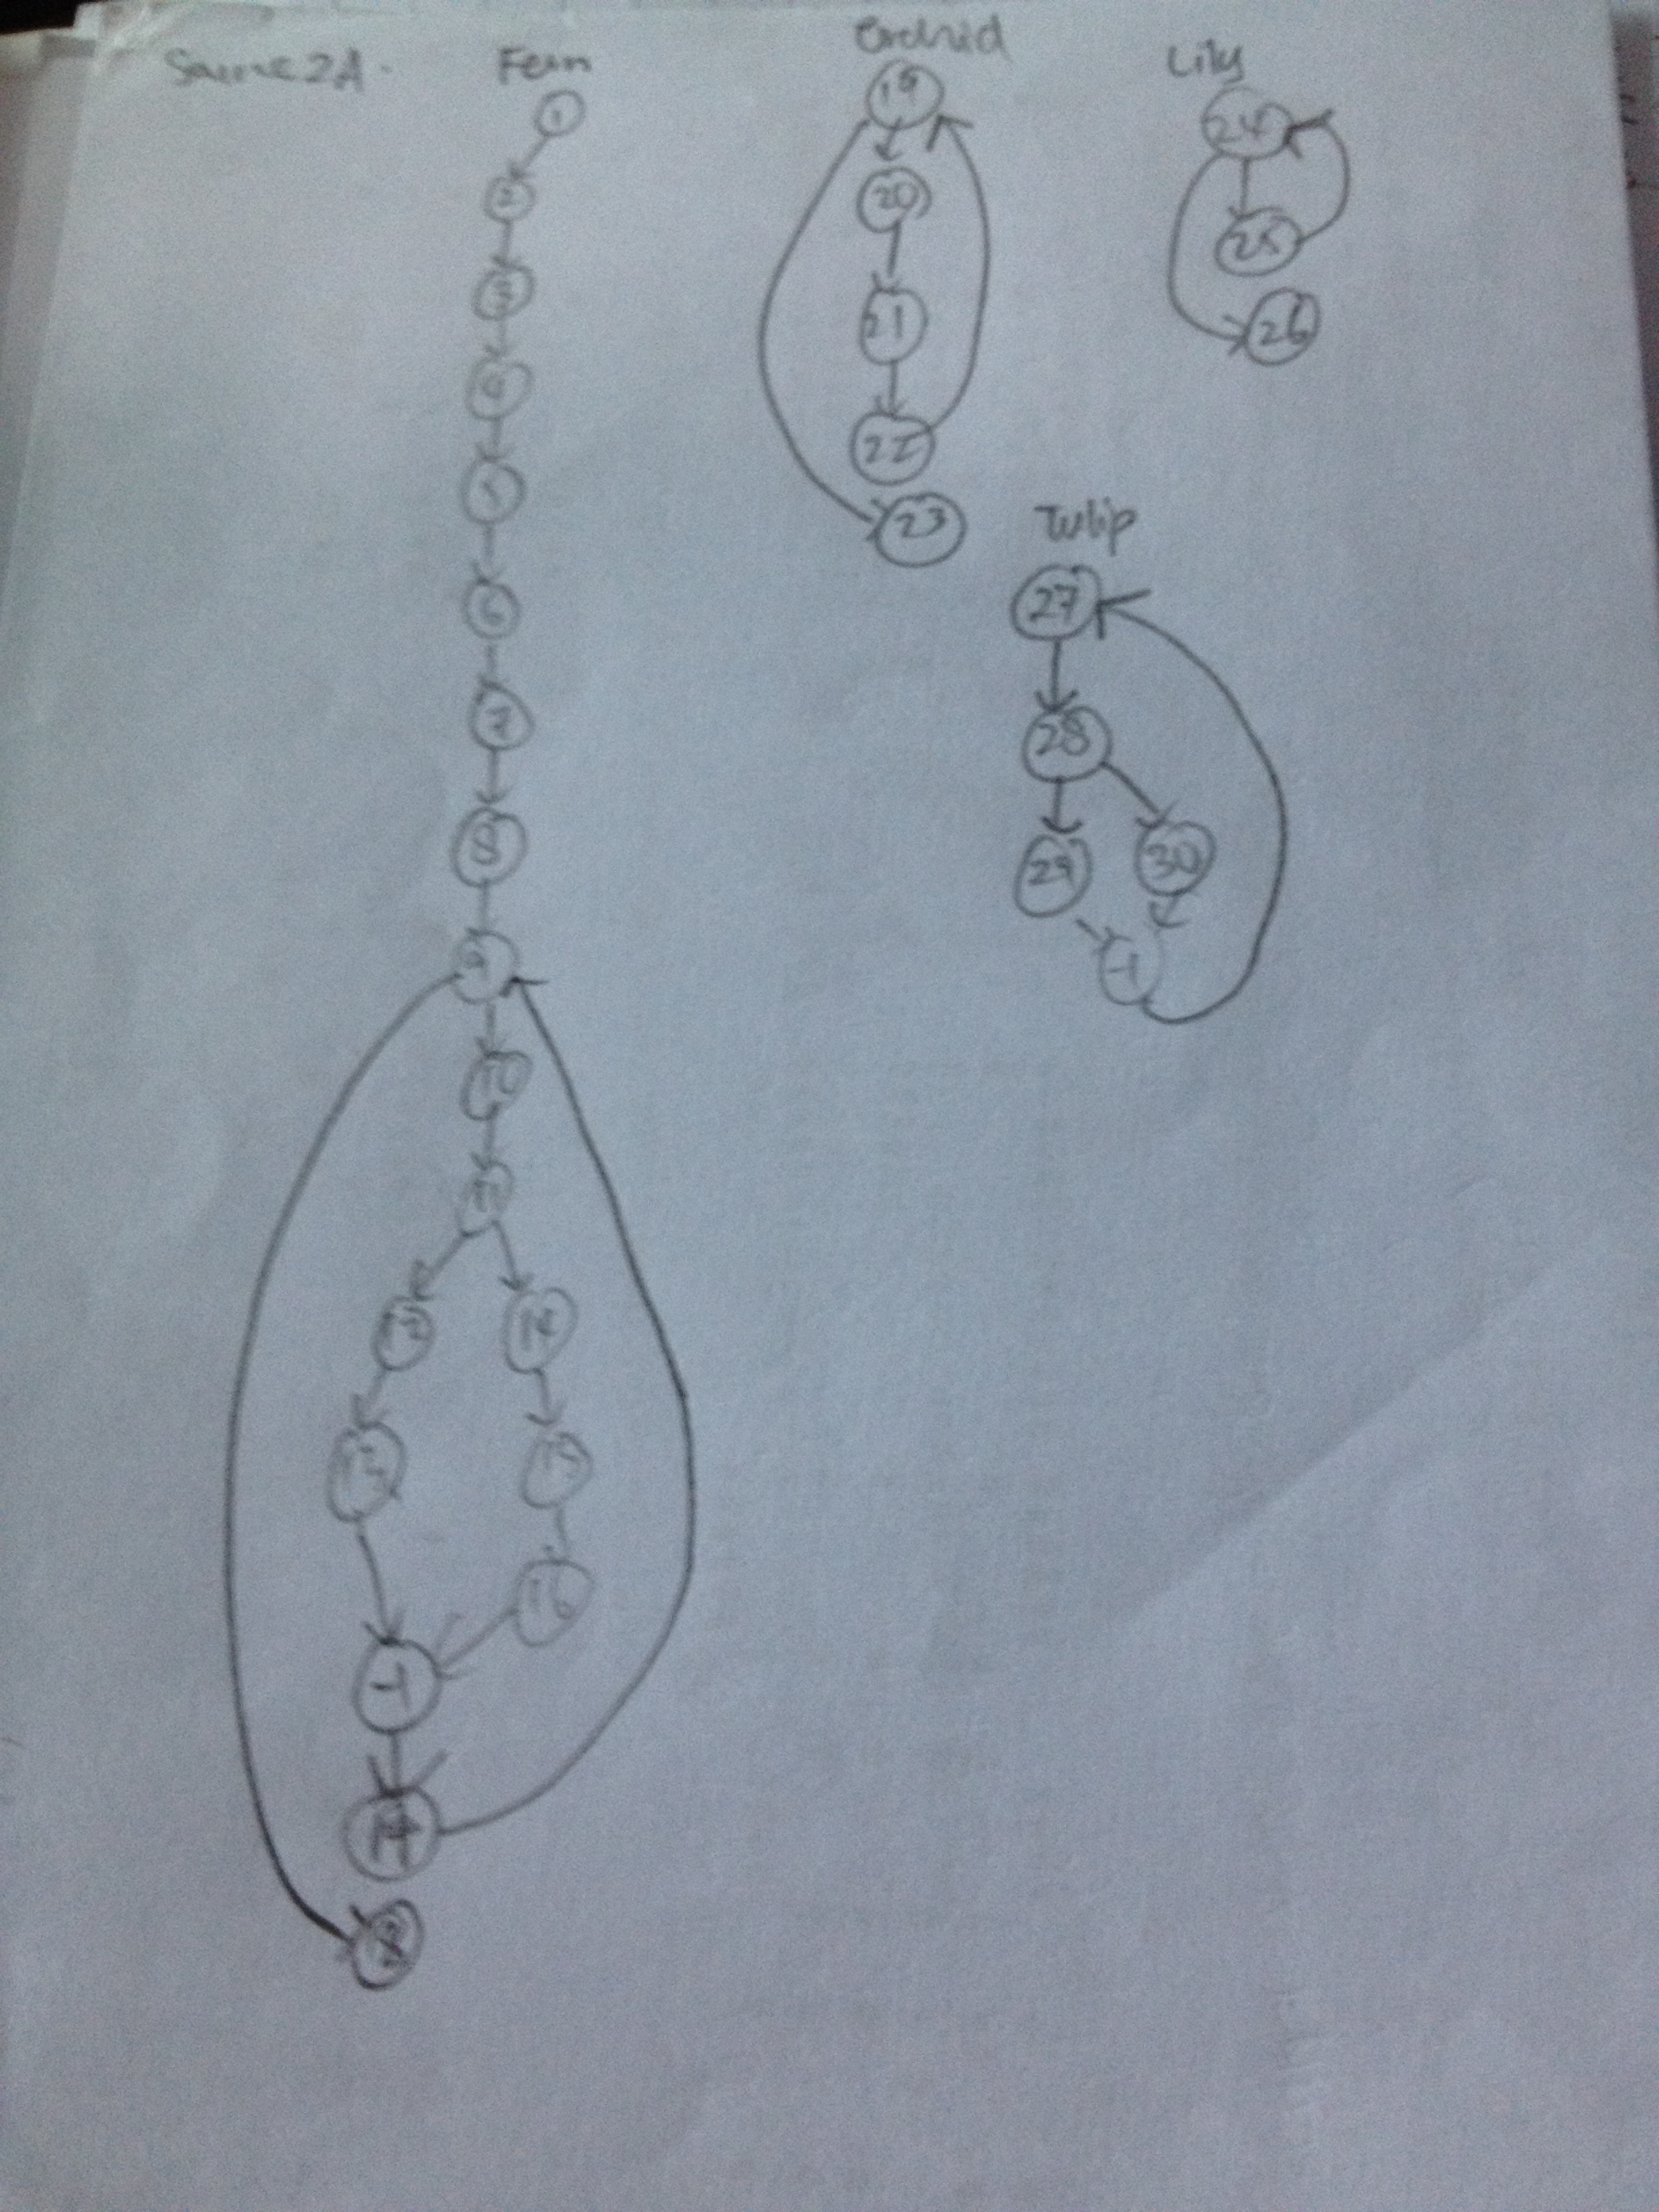 Source 2A.
Fern
1
2
3
4
5
6
7
8
9
10
11
12
14
13
15
16
-1
17
18
Orchid
19
20
21
22
23
Lily
24
25
26
Tulip
27
28
29
30
-1